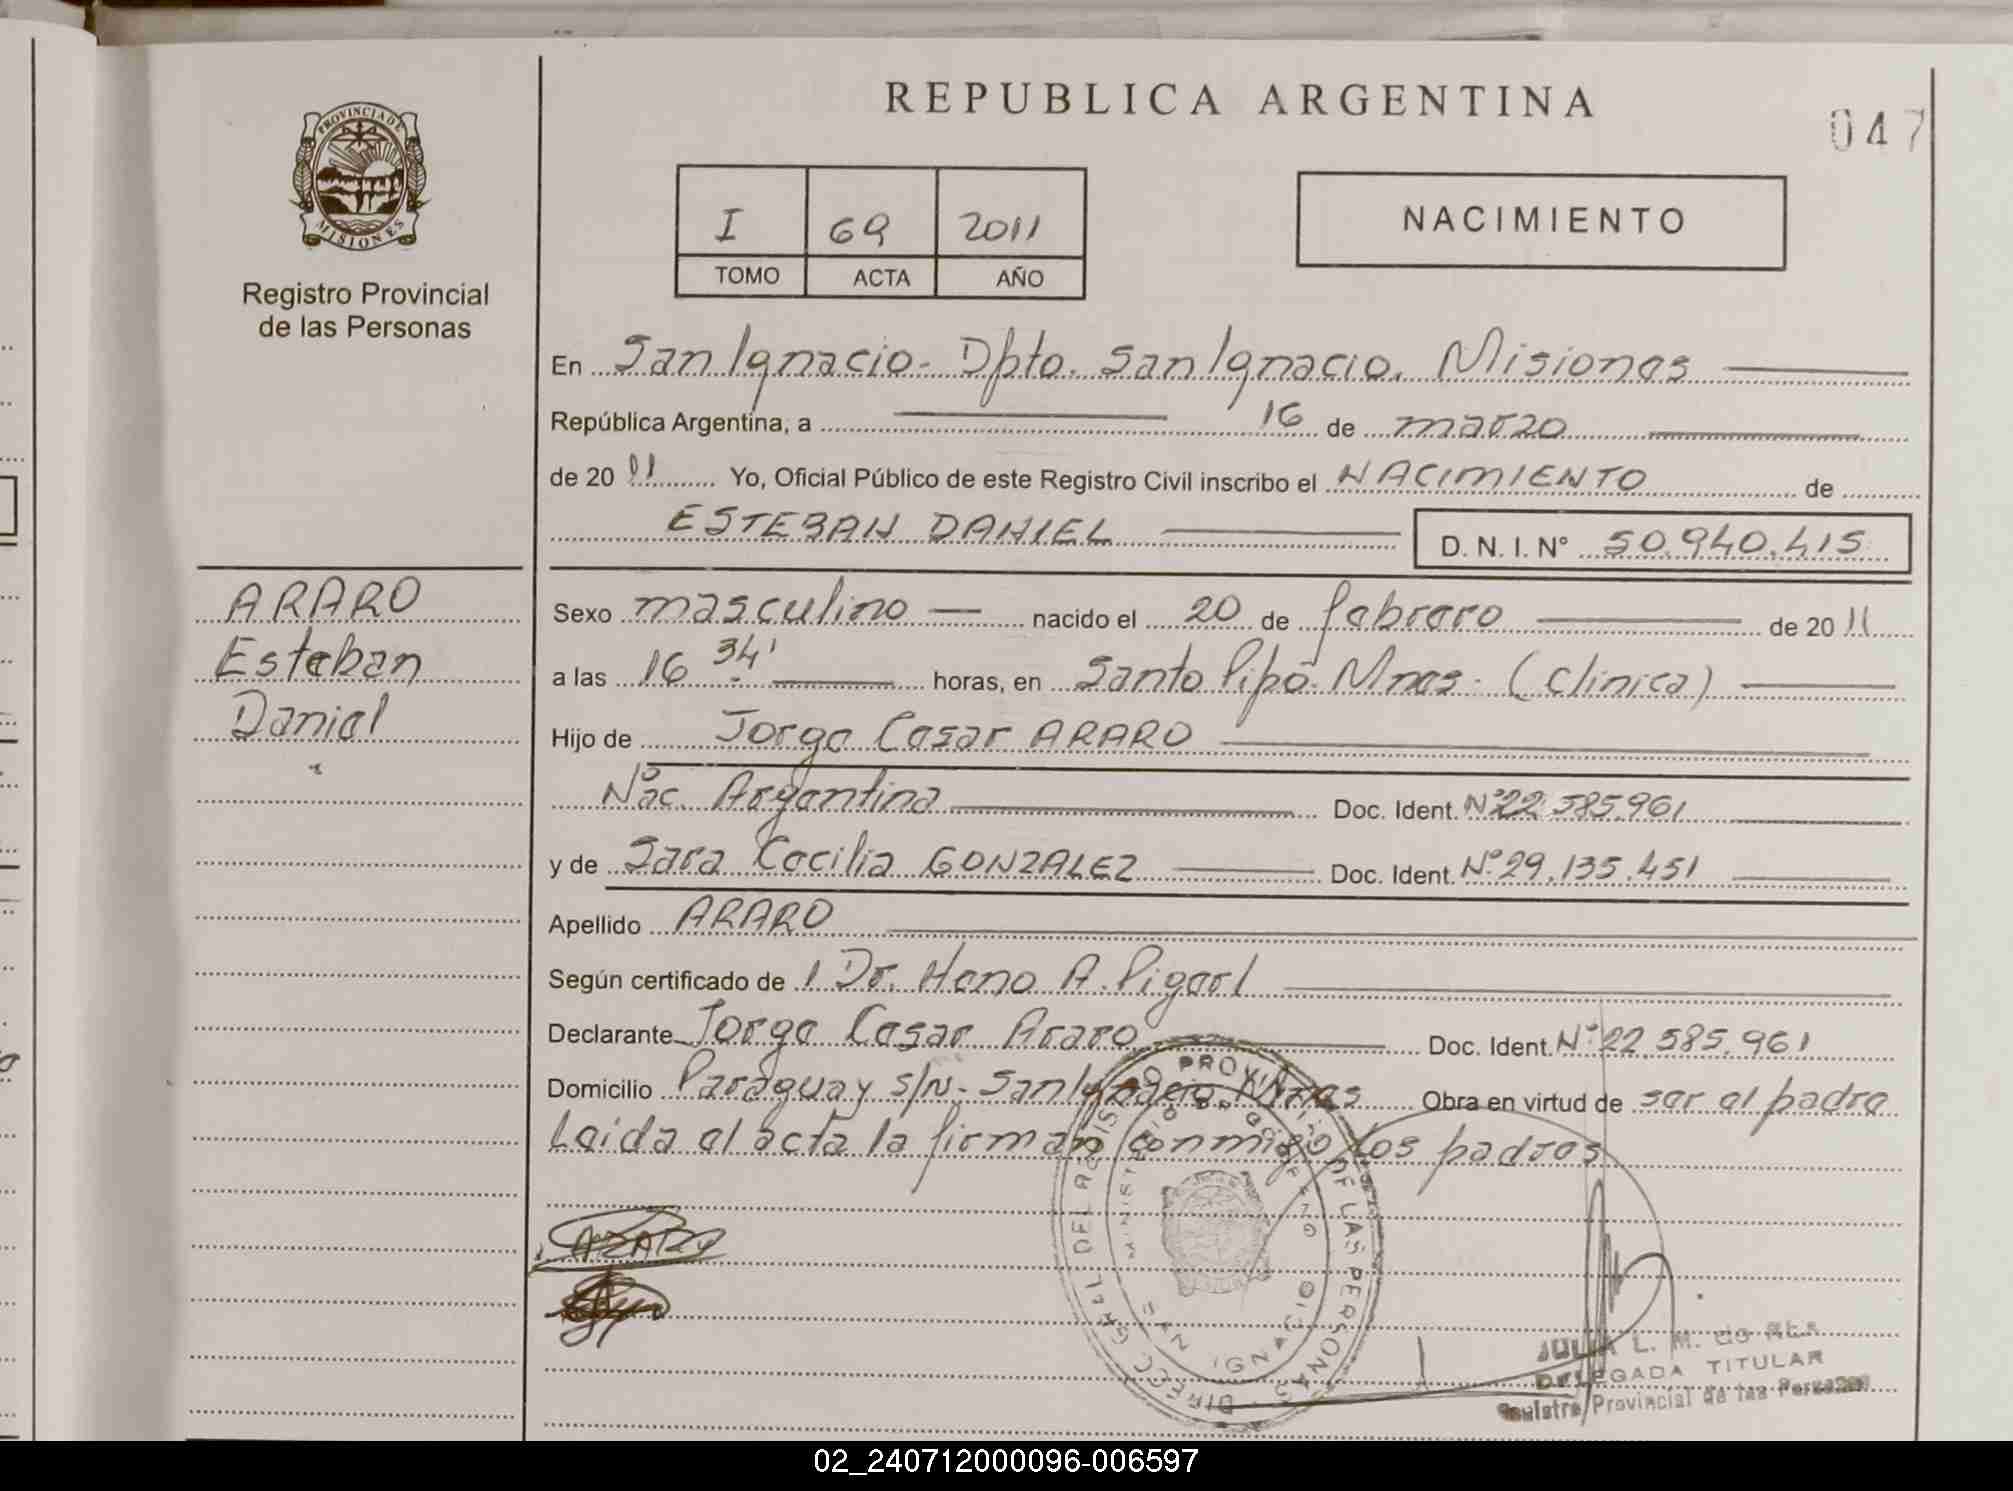 REPUBLICA ARGENTINA
047
PROVINCIA DE
MISIONES
Registro Provincial
de las Personas
I 69 2011
TOMO ACTA AÑO
NACIMIENTO
En San Ignacio - Dpto. San Ignacio. Misiones
República Argentina, a 16 de marzo
de 20 11 Yo, Oficial Público de este Registro Civil inscribo el NACIMIENTO de
ESTEBAN DANIEL D. N. I. N° 50.940.415
ARARO
Esteban
Daniel
Sexo masculino nacido el 20 de febrero de 20 11
a las 16 34' horas, en Santo Pipó - Mnes. (Clinica)
Hijo de Jorge Cesar ARARO
Nac. Argentina Doc. Ident. N° 22.585.961
y de Sara Cecilia GONZALEZ Doc. Ident. N° 29.135.451
Apellido ARARO
Según certificado de Dr. A.
Declarante Jorge Cesar Araro Doc. Ident. N° 22.585.961
Domicilio Paraguay s/N - San Ignacio Mnes Obra en virtud de ser el padre
Leida el acta la firman conmigo los padres
ARARO
DIREC GRAL DEL REGISTRO PROVINCIAL DE LAS PERSONAS
MINISTERIO DE GOBIERNO
SAN IGNACIO
JULIA L. M. de
DELEGADA TITULAR
Registro Provincial de las Personas
02_240712000096-006597